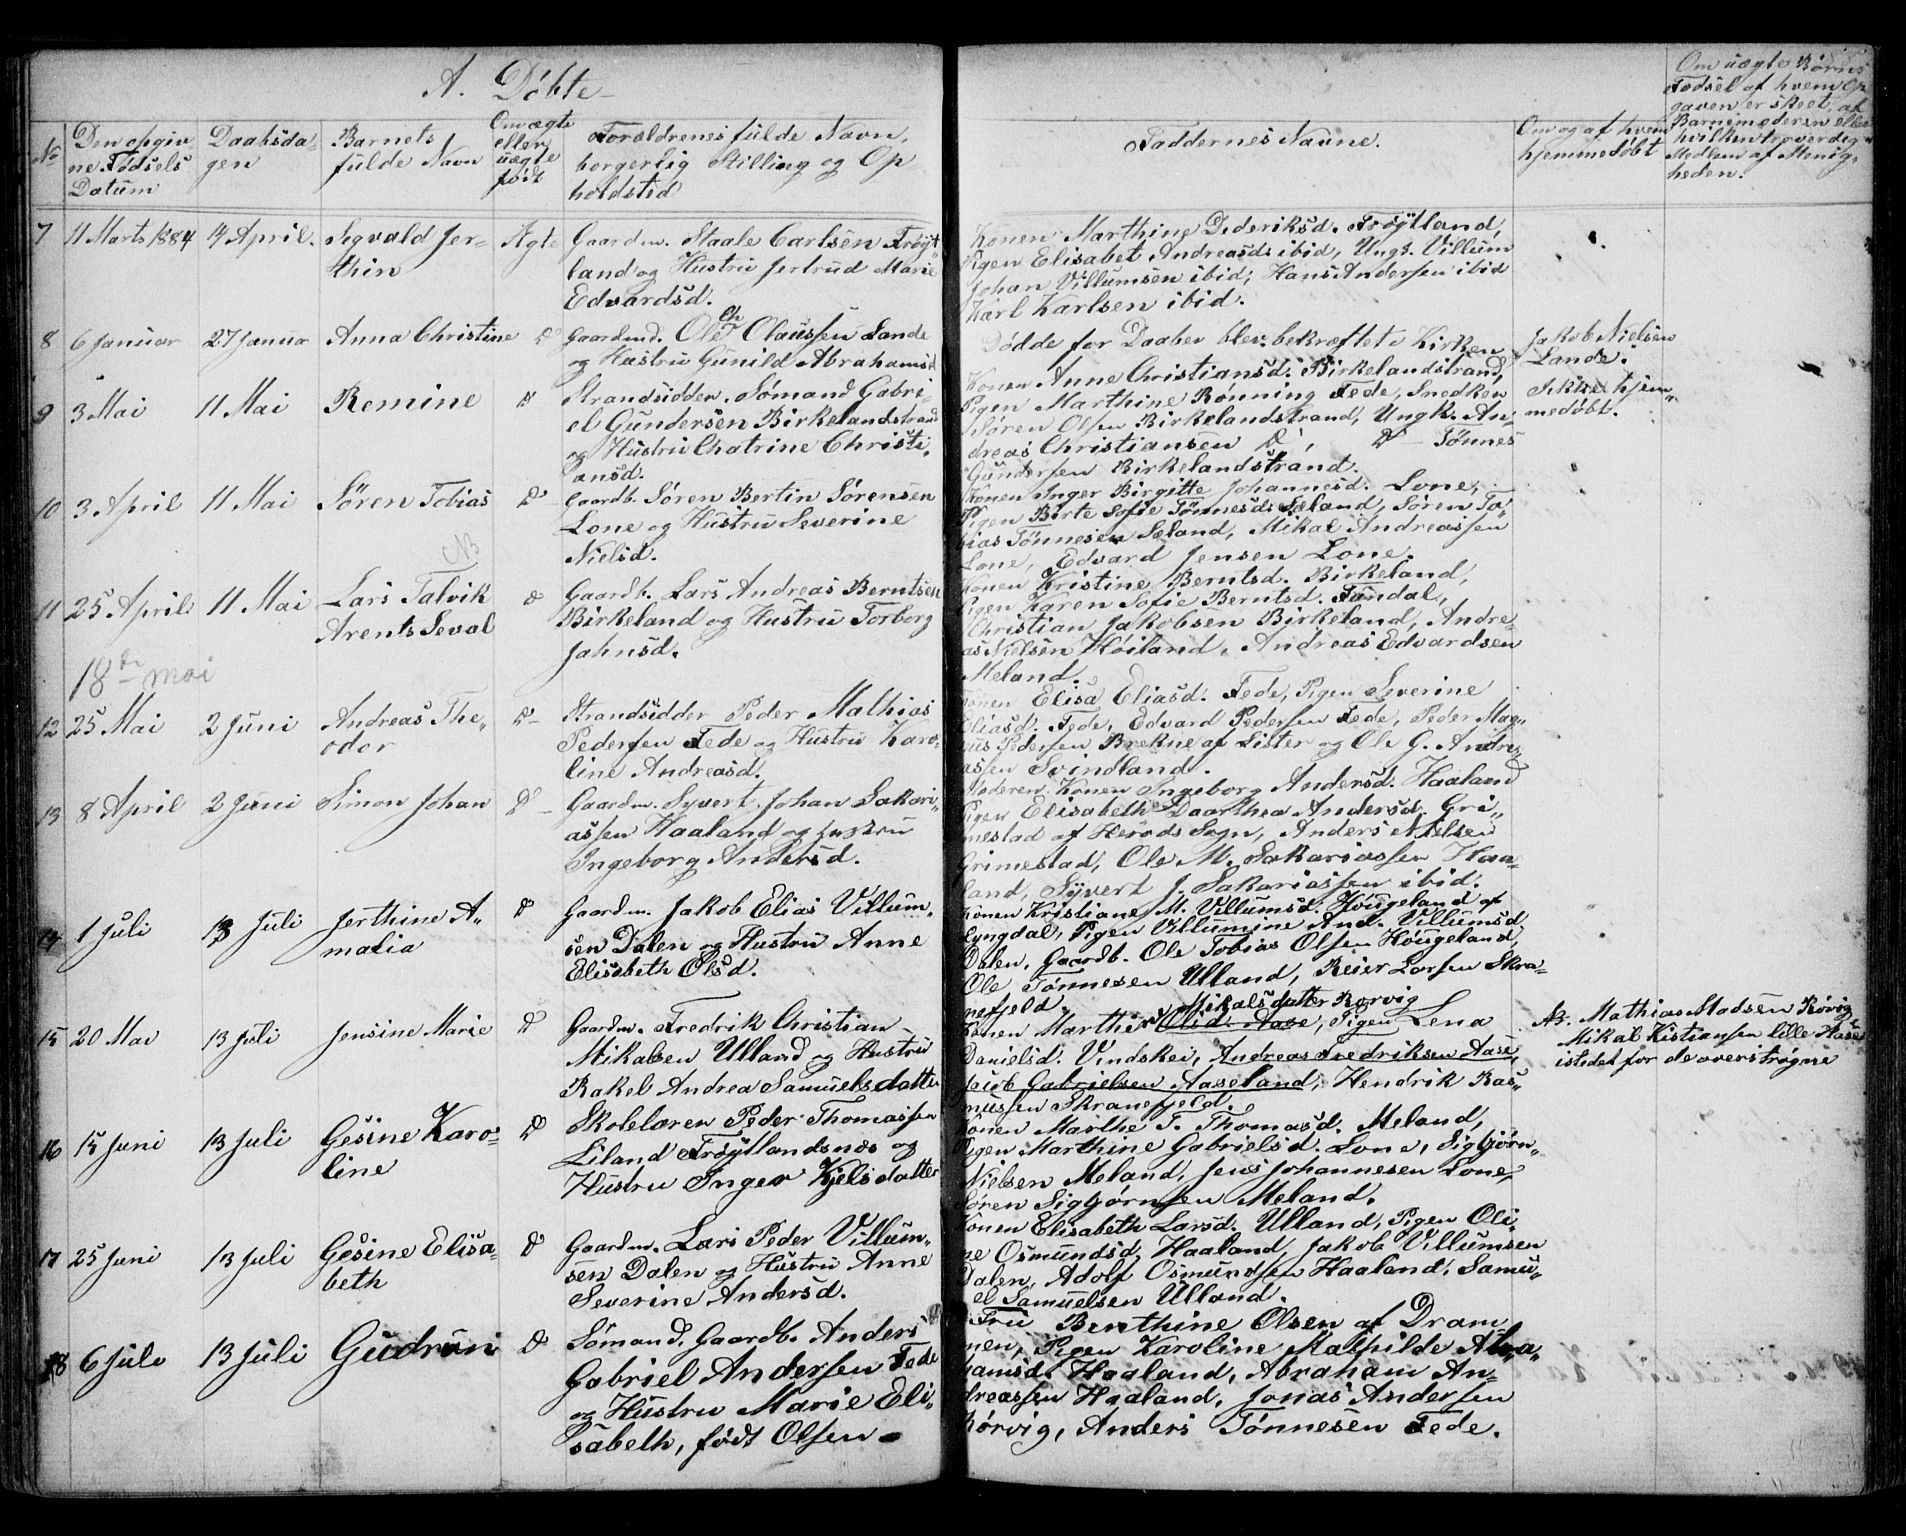 A. Döbte
No
Den opgiv
ne Fødsels
Datum
Daabsda-
gen
Barnets
fulde Navn
Om ægte
eller
uægte
født
Forældrenes fulde Navn,
borgerlig Stilling og Op
holdstid
Faddernes Navne.
Om og af hvem
hjemmedøbt
Om uægte Børns
Fødsel af hvem Op
gaven er skeet, af
Barnemoderen eller
hvilken troverdig
Medlem af Menig-
heden.
7 11 Marts 1884 14 April. Segvald Jer-
thin
Ægte Gaardm. Staale Carlsen Frøyt
land og Hustru Jertrud Marie
Edvardsd.
Konen Marthine Dideriksd. Frøytland,
Pigen Elisabet Andreasd: ibid, Ungk. Villum
Johan Villumsen ibid, Hans Andersen ibid
Karl Karlsen ibid.
8 6 Januar 27 Janua Anna Christine D Gaardmd. Ole Ch Olaussen Lande
og Hustru Gunild Abrahamsd
Dødde for Daaben blev bekræftet i Kirken
Jakob Nielsen
Lande.
9 3 Mai 11 Mai Remine D Strandsidder. Sømand Gabri-
el Gundersen Birkelandstrand
og Hustru Chatrine Christi-
ansd.
Konen Anne Christiansd. Birkelandstrand,
Pigen Marthine Rønning Fede, Snedker
Søren Olsen Birkelandstrand, Ungk. An-
dreas Christiansen D, D Tønnes
Gundersen Birkelandstrand.
Ikke hjem-
medøbt.
10 3 April 11 Mai Søren Tobias D Gaardb. Søren Bertin Sørensen
Lone og Hustru Severine
Nielsd.
Konen Inger Birgitte Johannesd. Lone,
Pigen Birte Sofie Tønnesd. Sæland, Søren To-
bias Tønnesen Sæland, Mikal Andreassen
Lone, Edvard Jensen Lone.
NB
11 25 April 11 Mai Lars Talvik
Arents Seval
D Gaardb. Lars Andreas Berntsen
Birkeland og Hustru Torborg
Jahnsd.
Konen Kristine Berntsd. Birkeland,
Pigen Karen Sofie Berntsd. Fandal,
Christian Jakobsen Birkeland, Andre-
as Nielsen Høiland, Andreas Edvardsen
Meland.
18de mai
12 25 Mai 2 Juni Andreas The-
odor
D- Strandsidder Peder Mathias
Pedersen Fede og Hustru Karo-
line Andreasd.
Konen Elisa Eliasd. Fede, Pigen Severine
Eliasd. Fede, Edvard Pedersen Fede, Peder Mag-
nus Pedersen Brekne af Lister og Ole G. Andre-
assen Svindland.
13 8 April 2 Juni Simon Johan D- Gaardm. Syvert Johan Sakari-
assen Haaland og Hustru
Ingeborg Andersd.
Moderen. Konen Ingeborg Andersd. Haaland
Pigen Elisabeth Daarthea Andersd. Gri-
mestad af Herads Sogn, Anders Nielsen
Grimestad, Ole M. Sakariassen Haa-
land, Syvert J. Sakariassen ibid.
14 1 Juli 13 Juli Jerthine A-
malia
D Gaardm. Jakob Elias Villum-
sen Dalen og Hustru Anne
Elisabeth Olsd.
Konen Kristiane M. Villumsd. Hougeland af
Lyngdal, Pigen Villumine And. Villumsd
Dalen, Gaardb. Ole Tobias Olsen Hougeland,
Ole Tønnesen Ulland, Reier Larsen Skra-
nefjeld.
15 20 Mai 13 Juli Jensine Marie D Gaardm. Fredrik Christian
Mikalsen Ulland og Hustru
Rakel Andrea Samuelsdatter
Mikalsdatter Rørvig
Konen Marthine Olsd. Aase, Pigen Lena
Danielsd. Vindskei, Andreas Fredriksen Aase,
Jacob Gabrielsen Aaseland, Hendrik Ras-
mussen Skranefjeld.
Nb. Mathias Madsen Rörvig
Mikal Kistiansen lille Hase
istedet for de overstrøgne
16 15 Juni 13 Juli Gesine Karo-
line
D Skolelæren Peder Thomassen
Liland Frøytlandsnæs og
Hustru Inger Kjelsdatter
Konen Marthe T. Thomasd. Meland,
Pigen Marthine Gabrielsd. Lone, Sigbjørn
Nielsen Meland, Jens Johannesen Lone,
Søren Sigbjørnsen Meland.
17 25 Juni 13 Juli Gesine Elisa-
beth
D Gaardm. Lars Peder Villum-
sen Dalen og Hustru Anne
Severine Andersd.
Konen Elisabeth Larsd. Ulland, Pigen Oli-
ne Osmundsd. Haaland, Jakob Villumsen
Dalen, Adolf Osmundsen Haaland, Samu-
el Samuelsen Ulland.
18 6 Juli 13 Juli Gudrun D Sømand. Gaardb. Anders
Gabriel Andersen Fede
og Hustru Marie Eli-
sabeth, født Olsen
Fru Benthine Olsen af Dram
men, Pigen Karoline Mathilde Abra-
hamsd. Haaland, Abraham An-
dreassen Haaland, Jonas Andersen
Rørvig, Anders Tønnesen Fede.